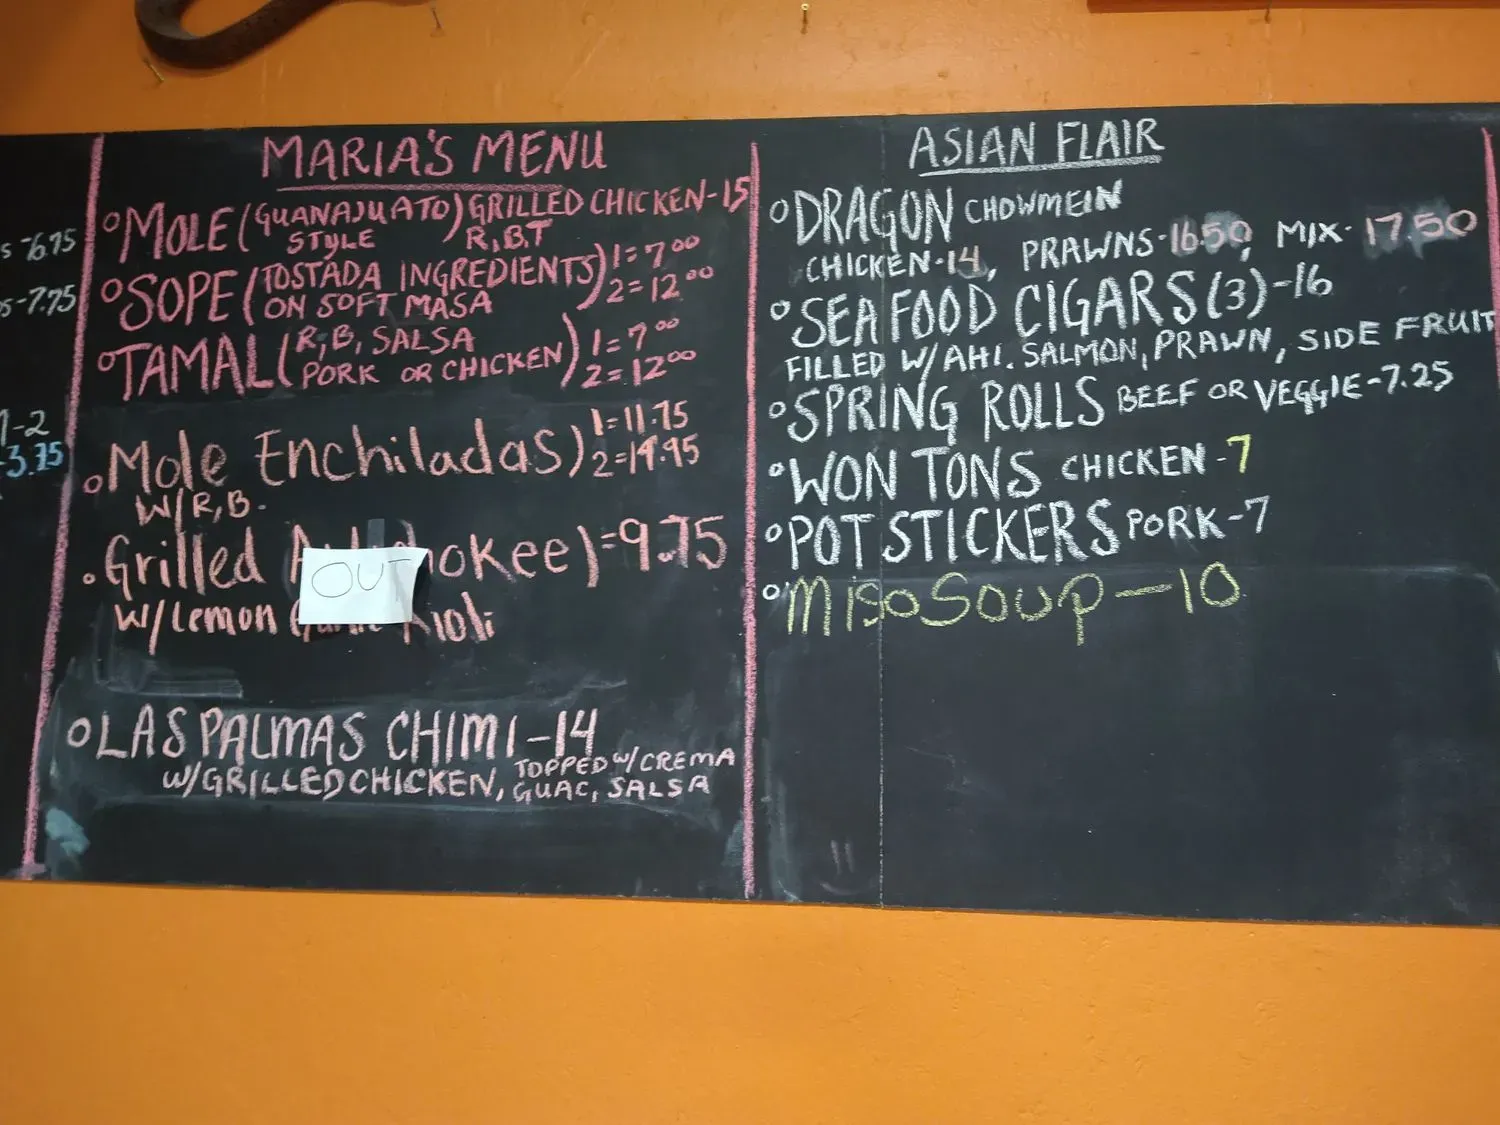 s -6.95
s-7.75
1-2
-3.75
MARIA'S MENU
MOLE (GUANAJUATO STYLE) GRILLED CHICKEN-15
R,B,T
SOPE (TOSTADA INGREDIENTS ON SOFT MASA) 1=7.00
2=12.00
TAMAL (R, B, SALSA PORK OR CHICKEN) 1=7.00
2=12.00
Mole Enchiladas) 1=11.75
2=14.95
W/R, B.
Grilled OUT okee)=9.75
w/Lemon Rioli
LAS PALMAS CHIMI-14
W/GRILLED CHICKEN, TOPPED W/CREMA
GUAC, SALSA
ASIAN FLAIR
DRAGON CHOWMEIN
CHICKEN-14, PRAWNS-16.50, MIX-17.50
SEAFOOD CIGARS (3)-16
FILLED W/AHI. SALMON, PRAWN, SIDE FRUIT
SPRING ROLLS BEEF OR VEGGIE-7.25
WON TONS CHICKEN-7
POT STICKERS PORK-7
Miso Soup-10